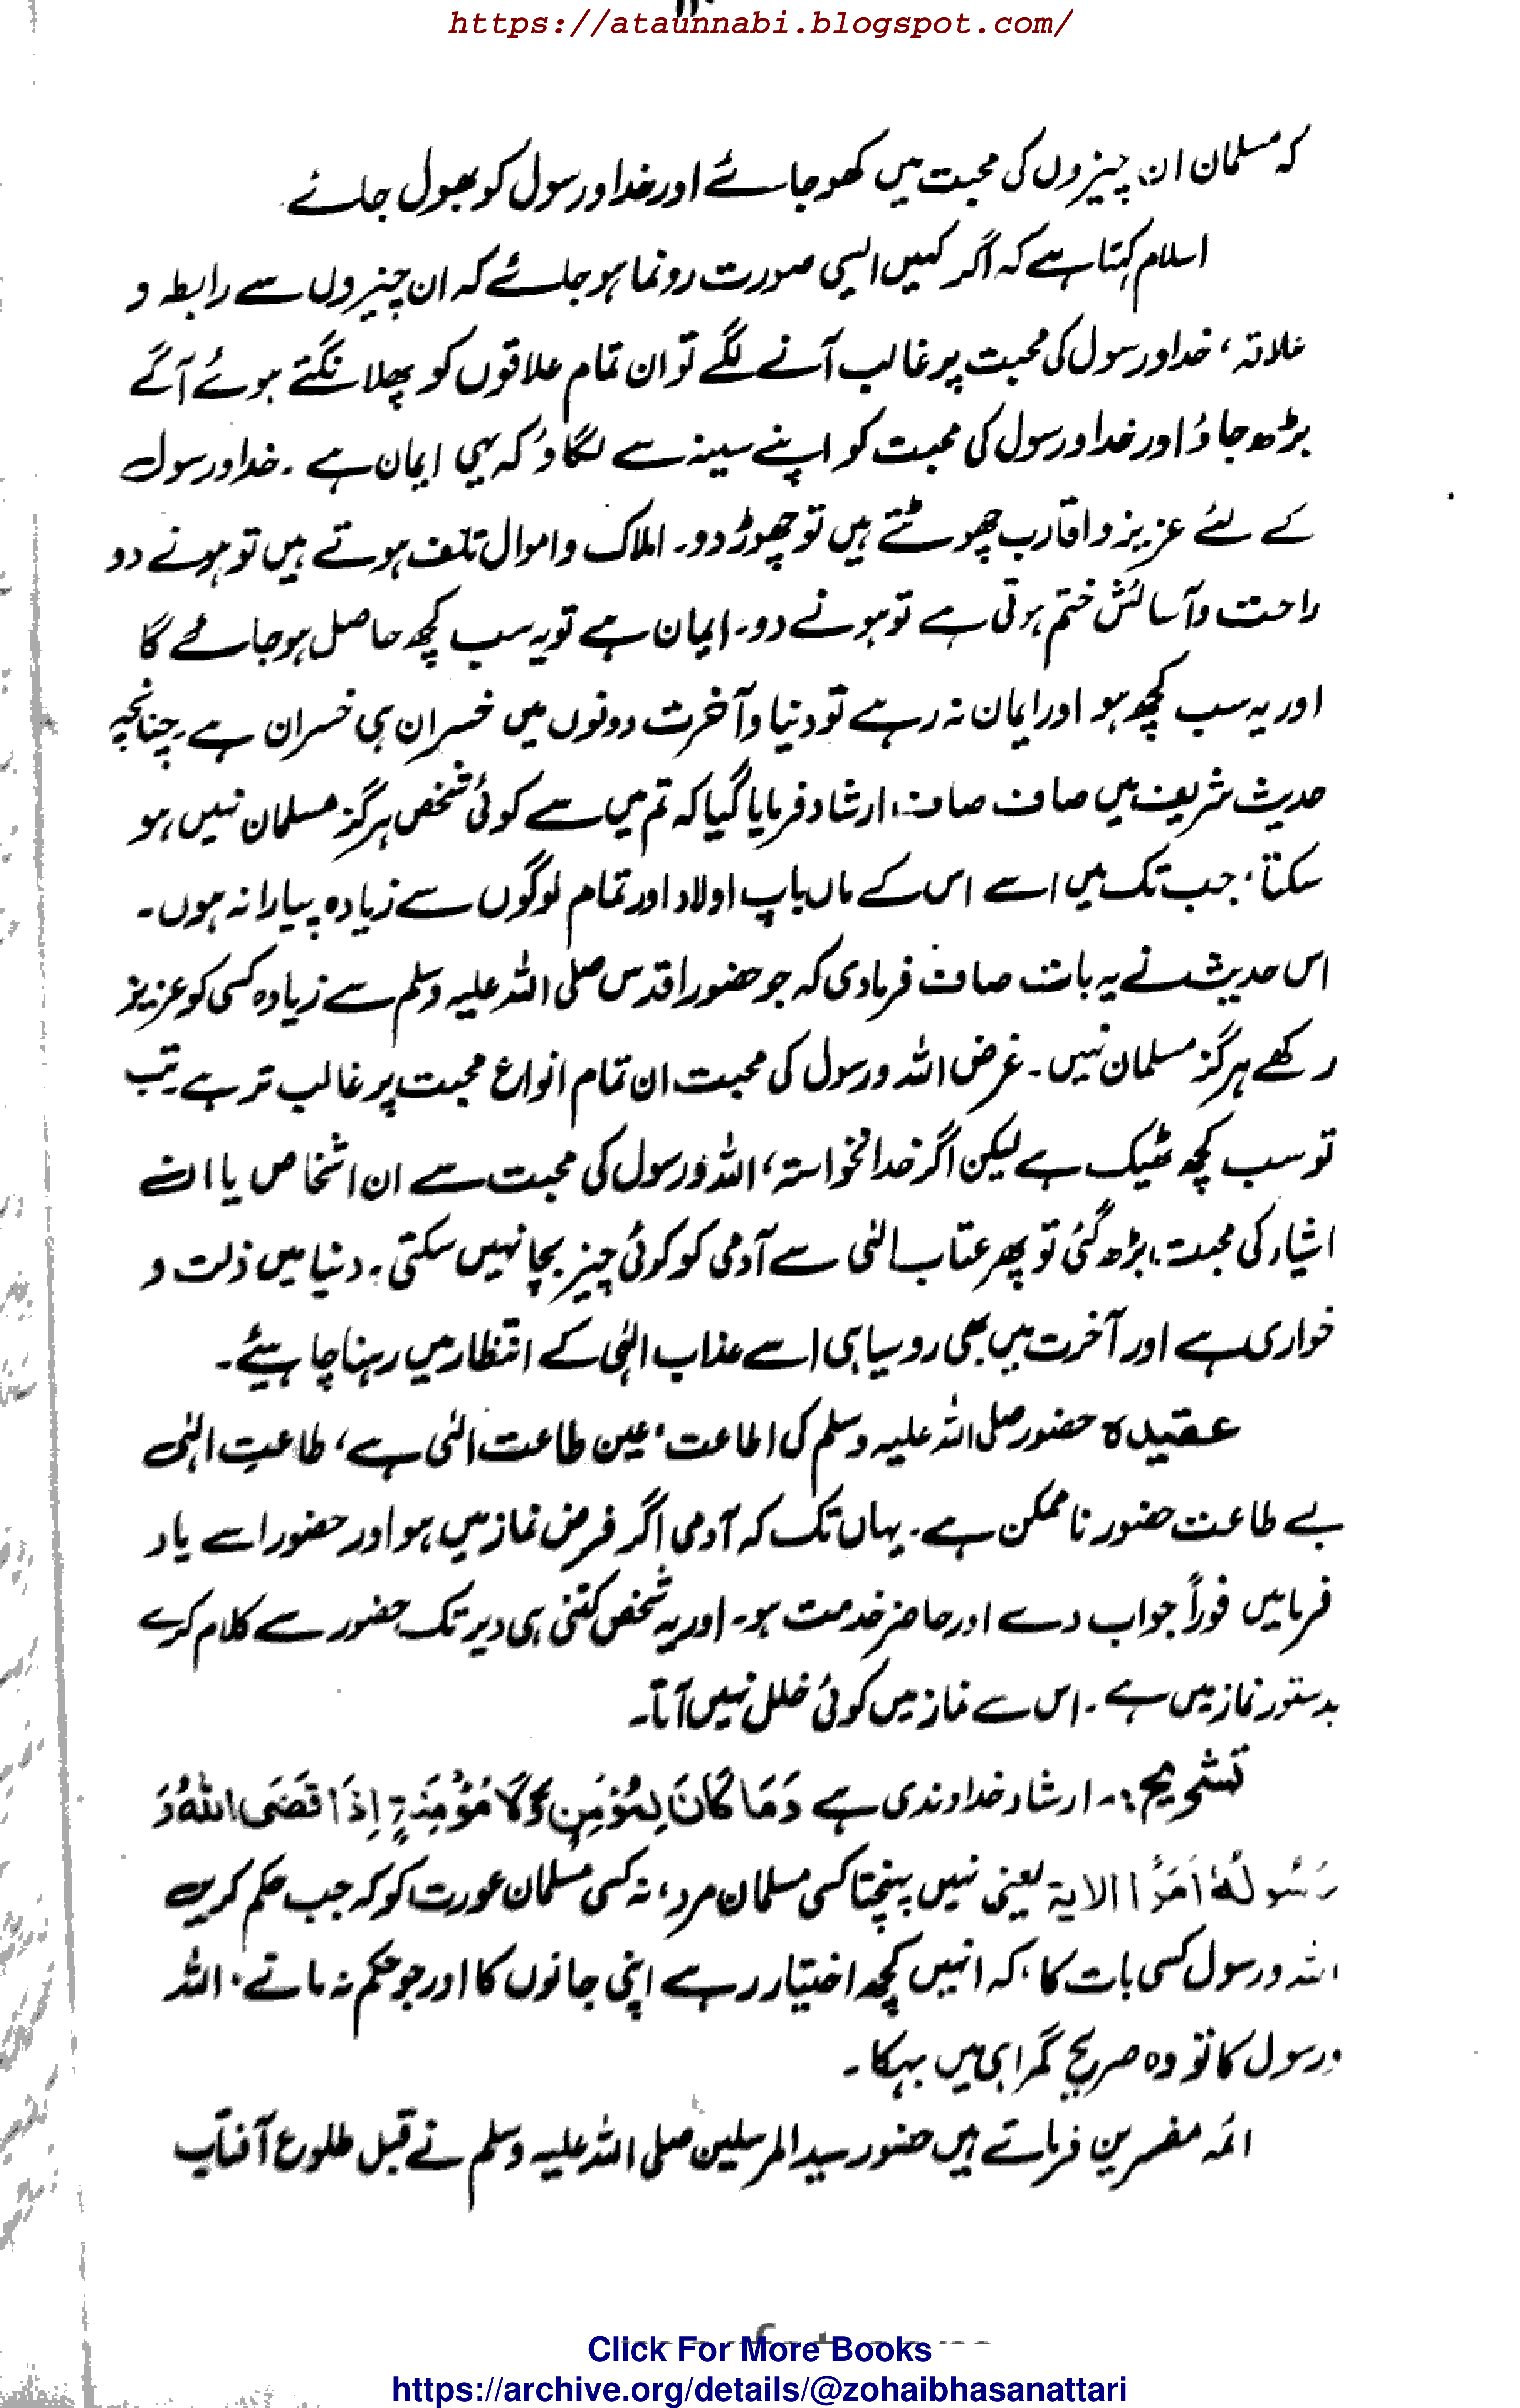 https://ataunnabi.blogspot.com/
کہ مسلمان ان چیزوں کی محبت میں کھو جائے اور خدا و رسول کو بھول جائے
اسلام کہتا ہے کہ اگر کہیں ایسی صورت رونما ہو جائے کہ ان چیزوں سے رابطہ و
علاقہ، خدا و رسول کی محبت پر غالب آنے لگے تو ان تمام علاقوں کو پھلانگتے ہوئے آگے
بڑھ جاؤ اور خدا و رسول کی محبت کو اپنے سینہ سے لگاؤ کہ یہی ایمان ہے ۔ خدا و رسول
کے لئے عزیز و اقارب چھوٹتے ہیں تو چھوڑ دو۔ املاک و اموال تلف ہوتے ہیں تو ہونے دو
راحت و آسائش ختم ہوتی ہے تو ہونے دو۔ ایمان ہے تو یہ سب کچھ حاصل ہو جائے گا
اور یہ سب کچھ ہو اور ایمان نہ رہے تو دنیا و آخرت دونوں میں خسران ہی خسران ہے۔ چنانچہ
حدیث شریف میں صاف صاف ارشاد فرمایا گیا کہ تم میں سے کوئی شخص ہرگز مسلمان نہیں ہو
سکتا، جب تک میں اسے اس کے ماں باپ اولاد اور تمام لوگوں سے زیادہ پیارا نہ ہوں۔
اس حدیث نے یہ بات صاف فرما دی کہ جو حضور اقدس صلی اللہ علیہ وسلم سے زیادہ کسی کو عزیز
رکھے ہرگز مسلمان نہیں ۔ غرض اللہ و رسول کی محبت ان تمام انواع محبت پر غالب تر ہے تب
تو سب کچھ ٹھیک ہے لیکن اگر خدانخواستہ، اللہ و رسول کی محبت سے ان اشخاص یا ان
اشیاء کی محبت بڑھ گئی تو پھر عتاب الٰہی سے آدمی کو کوئی چیز بچا نہیں سکتی ۔ دنیا میں ذلت و
خواری ہے اور آخرت میں بھی روسیاہی اسے عذاب الٰہی کے انتظار میں رہنا چاہیئے۔
عقیدہ حضور صلی اللہ علیہ وسلم کی اطاعت، عین طاعت الٰہی ہے، طاعتِ الٰہی
بے طاعت حضور ناممکن ہے۔ یہاں تک کہ آدمی اگر فرض نماز میں ہو اور حضور اسے یاد
فرمائیں فوراً جواب دے اور حاضر خدمت ہو۔ اور یہ شخص کتنی ہی دیر تک حضور سے کلام کرے
بدستور نماز میں ہے ۔ اس سے نماز میں کوئی خلل نہیں آتا۔
تشریح :۔ ارشاد خداوندی ہے وَمَا کَانَ لِمُؤْمِنٍ وَّلَا مُؤْمِنَۃٍ اِذَا قَضَی اللّٰہُ وَ
رَسُوْلُہٗ اَمْرًا الایۃ یعنی نہیں پہنچتا کسی مسلمان مرد، نہ کسی مسلمان عورت کو کہ جب حکم کریں
اللہ و رسول کسی بات کا، کہ انہیں کچھ اختیار رہے اپنی جانوں کا اور جو حکم نہ مانے، اللہ
و رسول کا تو وہ صریح گمراہی میں بہکا ۔
ائمہ مفسرین فرماتے ہیں حضور سید المرسلین صلی اللہ علیہ وسلم نے قبل طلوع آفتاب
Click For More Books
https://archive.org/details/@zohaibhasanattari